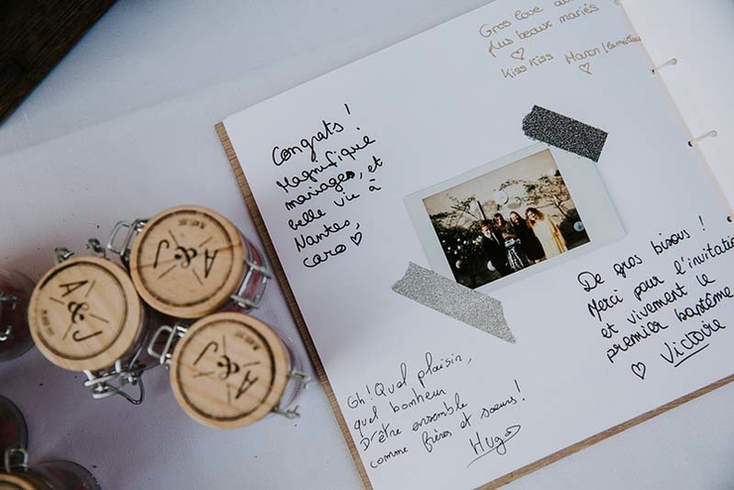 Gros love aux
plus beaux mariés
♡
Kiss Kiss Manon
♡
Congrats!
Magnifique
mariages, et
belle vie à
Nantes,
caro ♡
De gros bisous!
Merci pour l'invitation
et vivement le
premier baptême
♡ Victoire
Oh! Quel plaisir,
quel bonheur
D'être ensemble
comme frères et sœurs!
Hugo
A & J
A & J
A & J